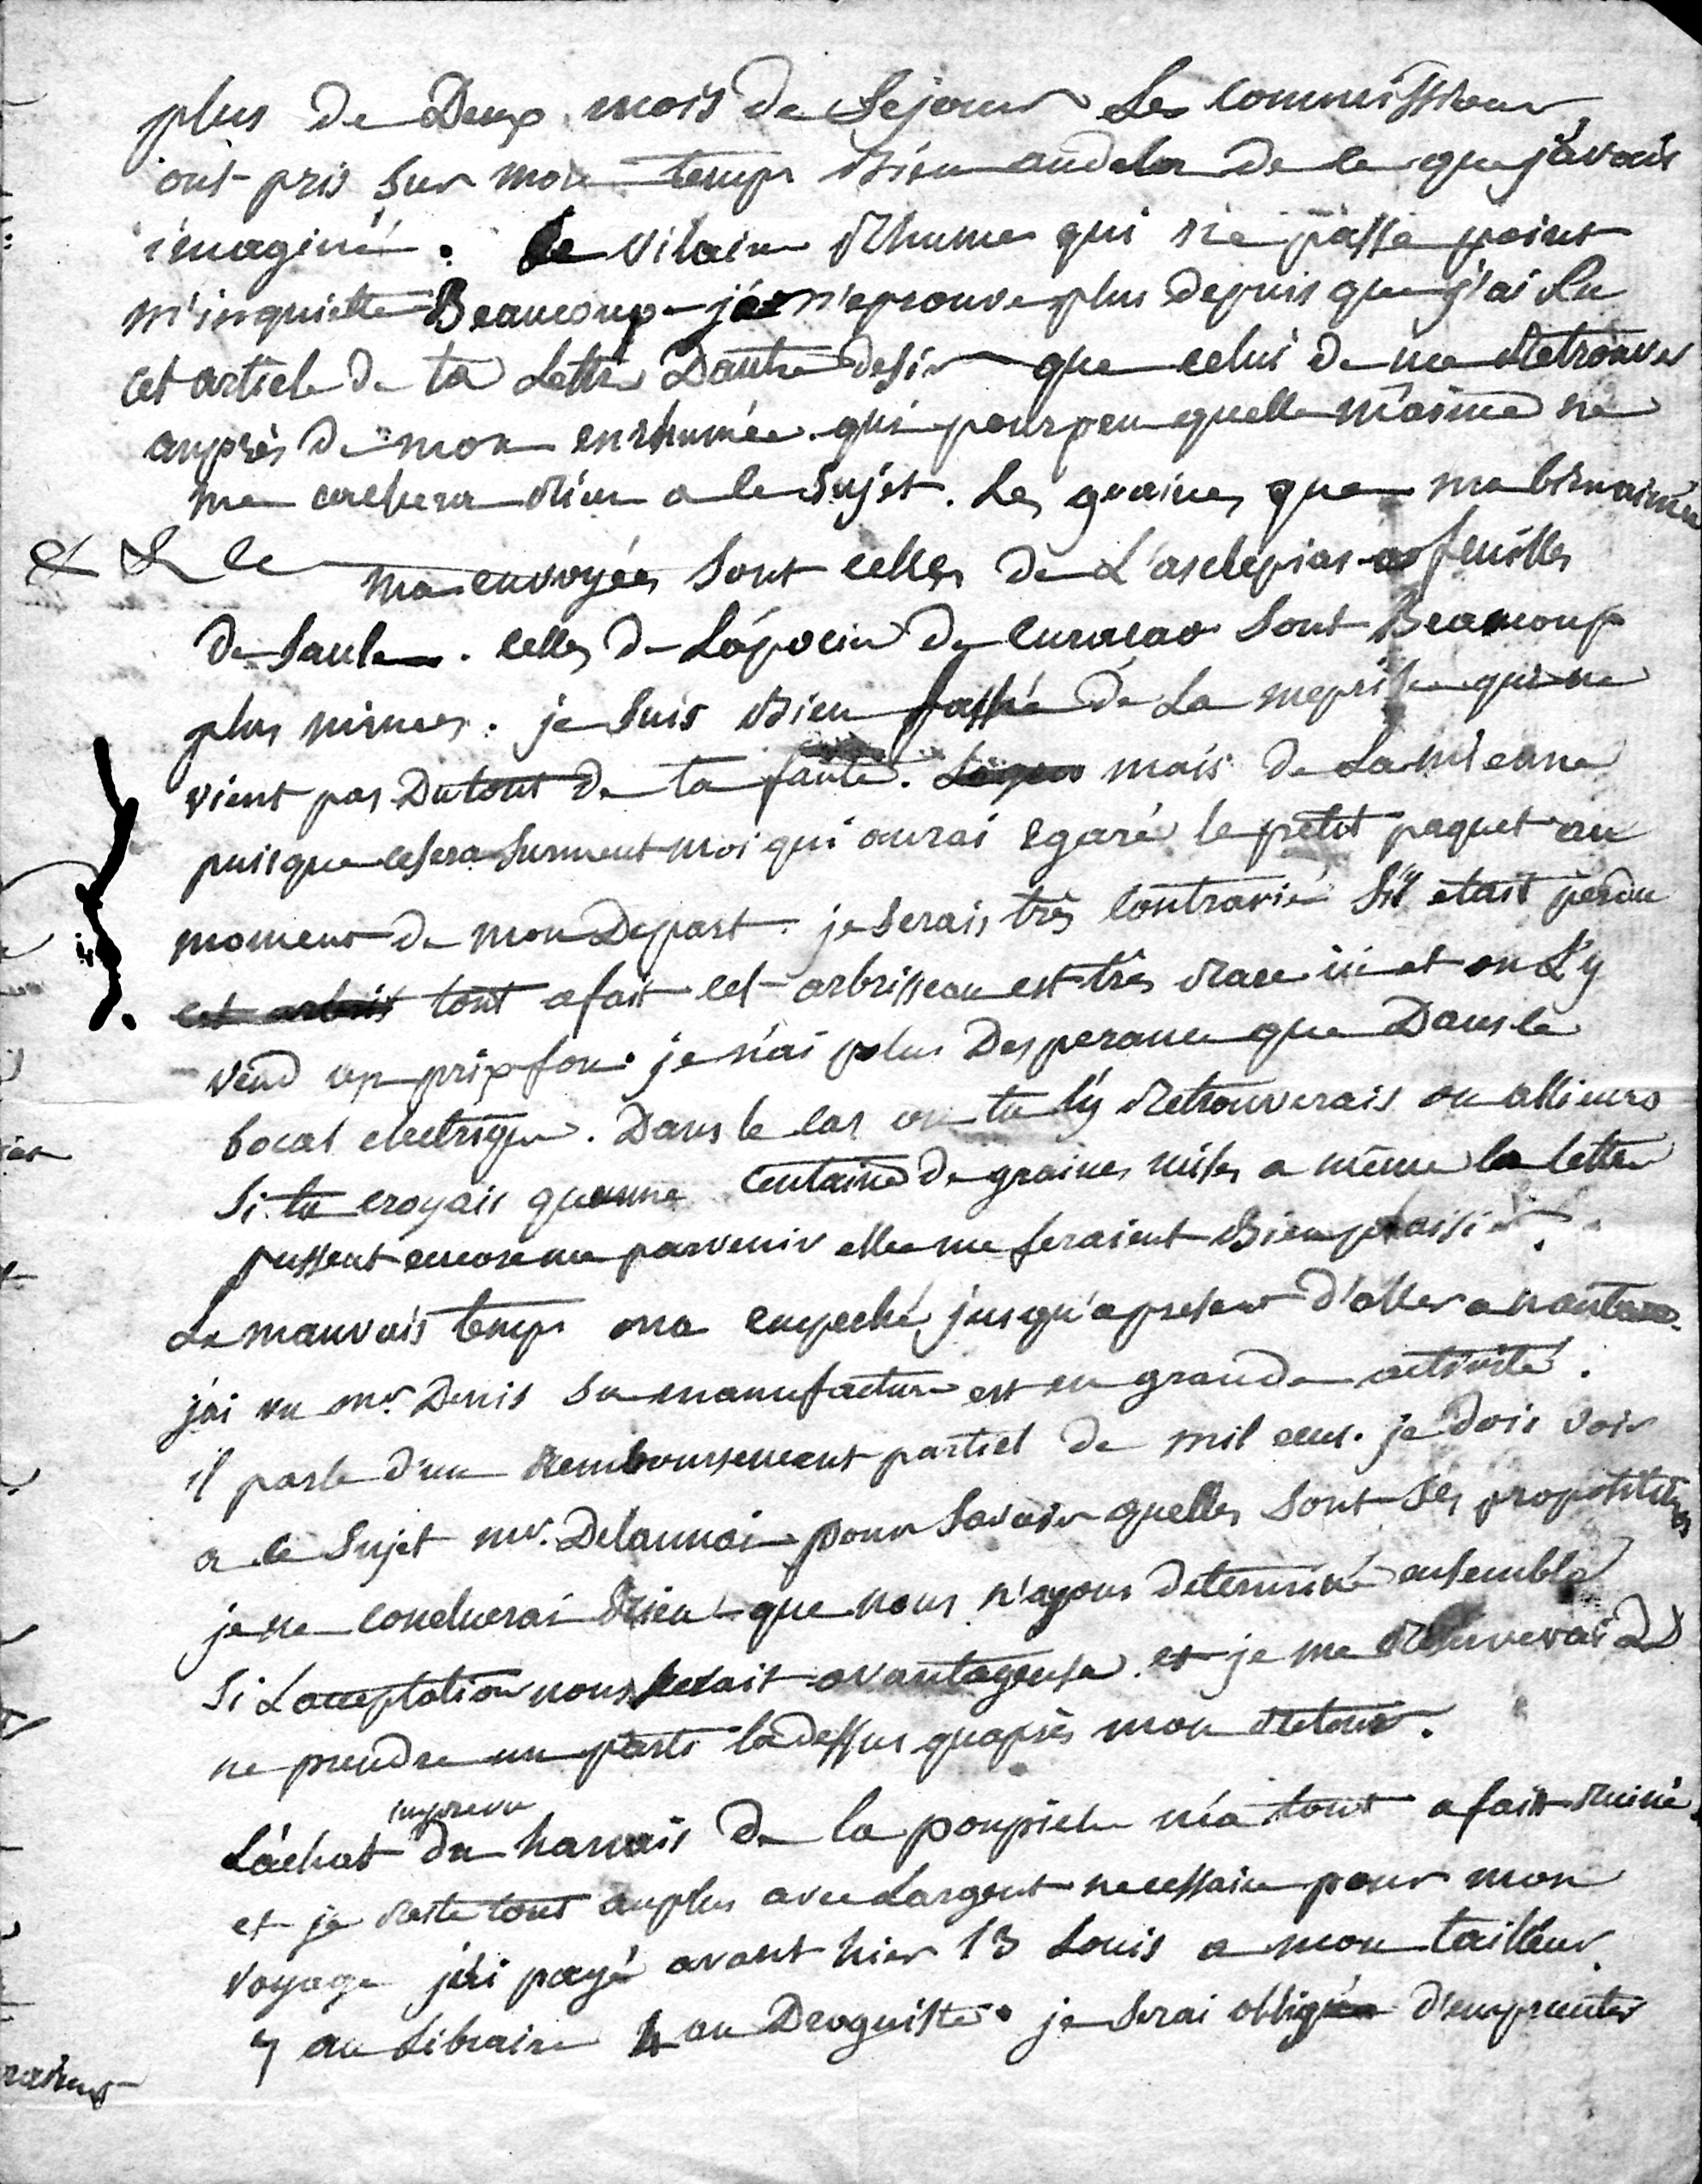 plus de Deux mois de Sejour Les commissions
ont pris Sur mon temps Bien audela de ce que j'avais
imaginé. Le vilain Rhume qui ne passe point
m'inquiette Beaucoup je n'eprouve plus depuis que j'ai Lu
cet article de ta Lettre Dautre desir que celui de me Retrouver
auprès de mon enrhumée qui pourpeu quelle m'aime ne
me cachera Rien a ce Sujet. Les graines que ma bienaimée
ma envoyées Sont celles de L'asclepias a feuilles
de Saule. celles de L'apocin de Curacao Sont Beaucoup
plus minces. je Suis Bien fasché de La meprise qui ne
vient pas Dutout de ta faute. mais de La mienne
puisque cesera Surement moi qui aurai egaré le petit paquet au
moment de mon Depart. je Serais très contrarié S'il etait perdu
cet arbris tout afait cet arbrisseau est très Rare ici et on L'y
vend un prix fou. je n'ai plus Desperance que Dans le
bocal electrique. Dans le cas ou tu l'y Retrouverais ou allieurs
Si tu croyais quune centaine de graines mises a même la lettre
pussent encore me parvenir elles me feraient Bien plaisir.
Le mauvais temps ma empeché jusqu'apresent d'aller a nanterre.
j'ai vu mr. Denis Sa manufacture est en grande activité.
il parle d'un Remboursement partiel de mil ecus. je dois voir
a ce Sujet mr. Delaunai pour Savoir quelles Sont Ses propositions
je ne concluerai Rien que nous n'ayons determiné ensemble
Si Lacceptation nous Serait avantageuse et je me Reserverai de
ne prendre un parti ladessus quaprès mon Retour.
imprevu
L'achat du harnais de la poupiele m'a tout afait Ruiné.
et je Reste tout auplus avec Largent necessaire pour mon
voyage j'ai payé avant hier 13 Louis a mon tailleur.
7 au Libraire 4 au Droguiste. je Serai obligé d'emprunter